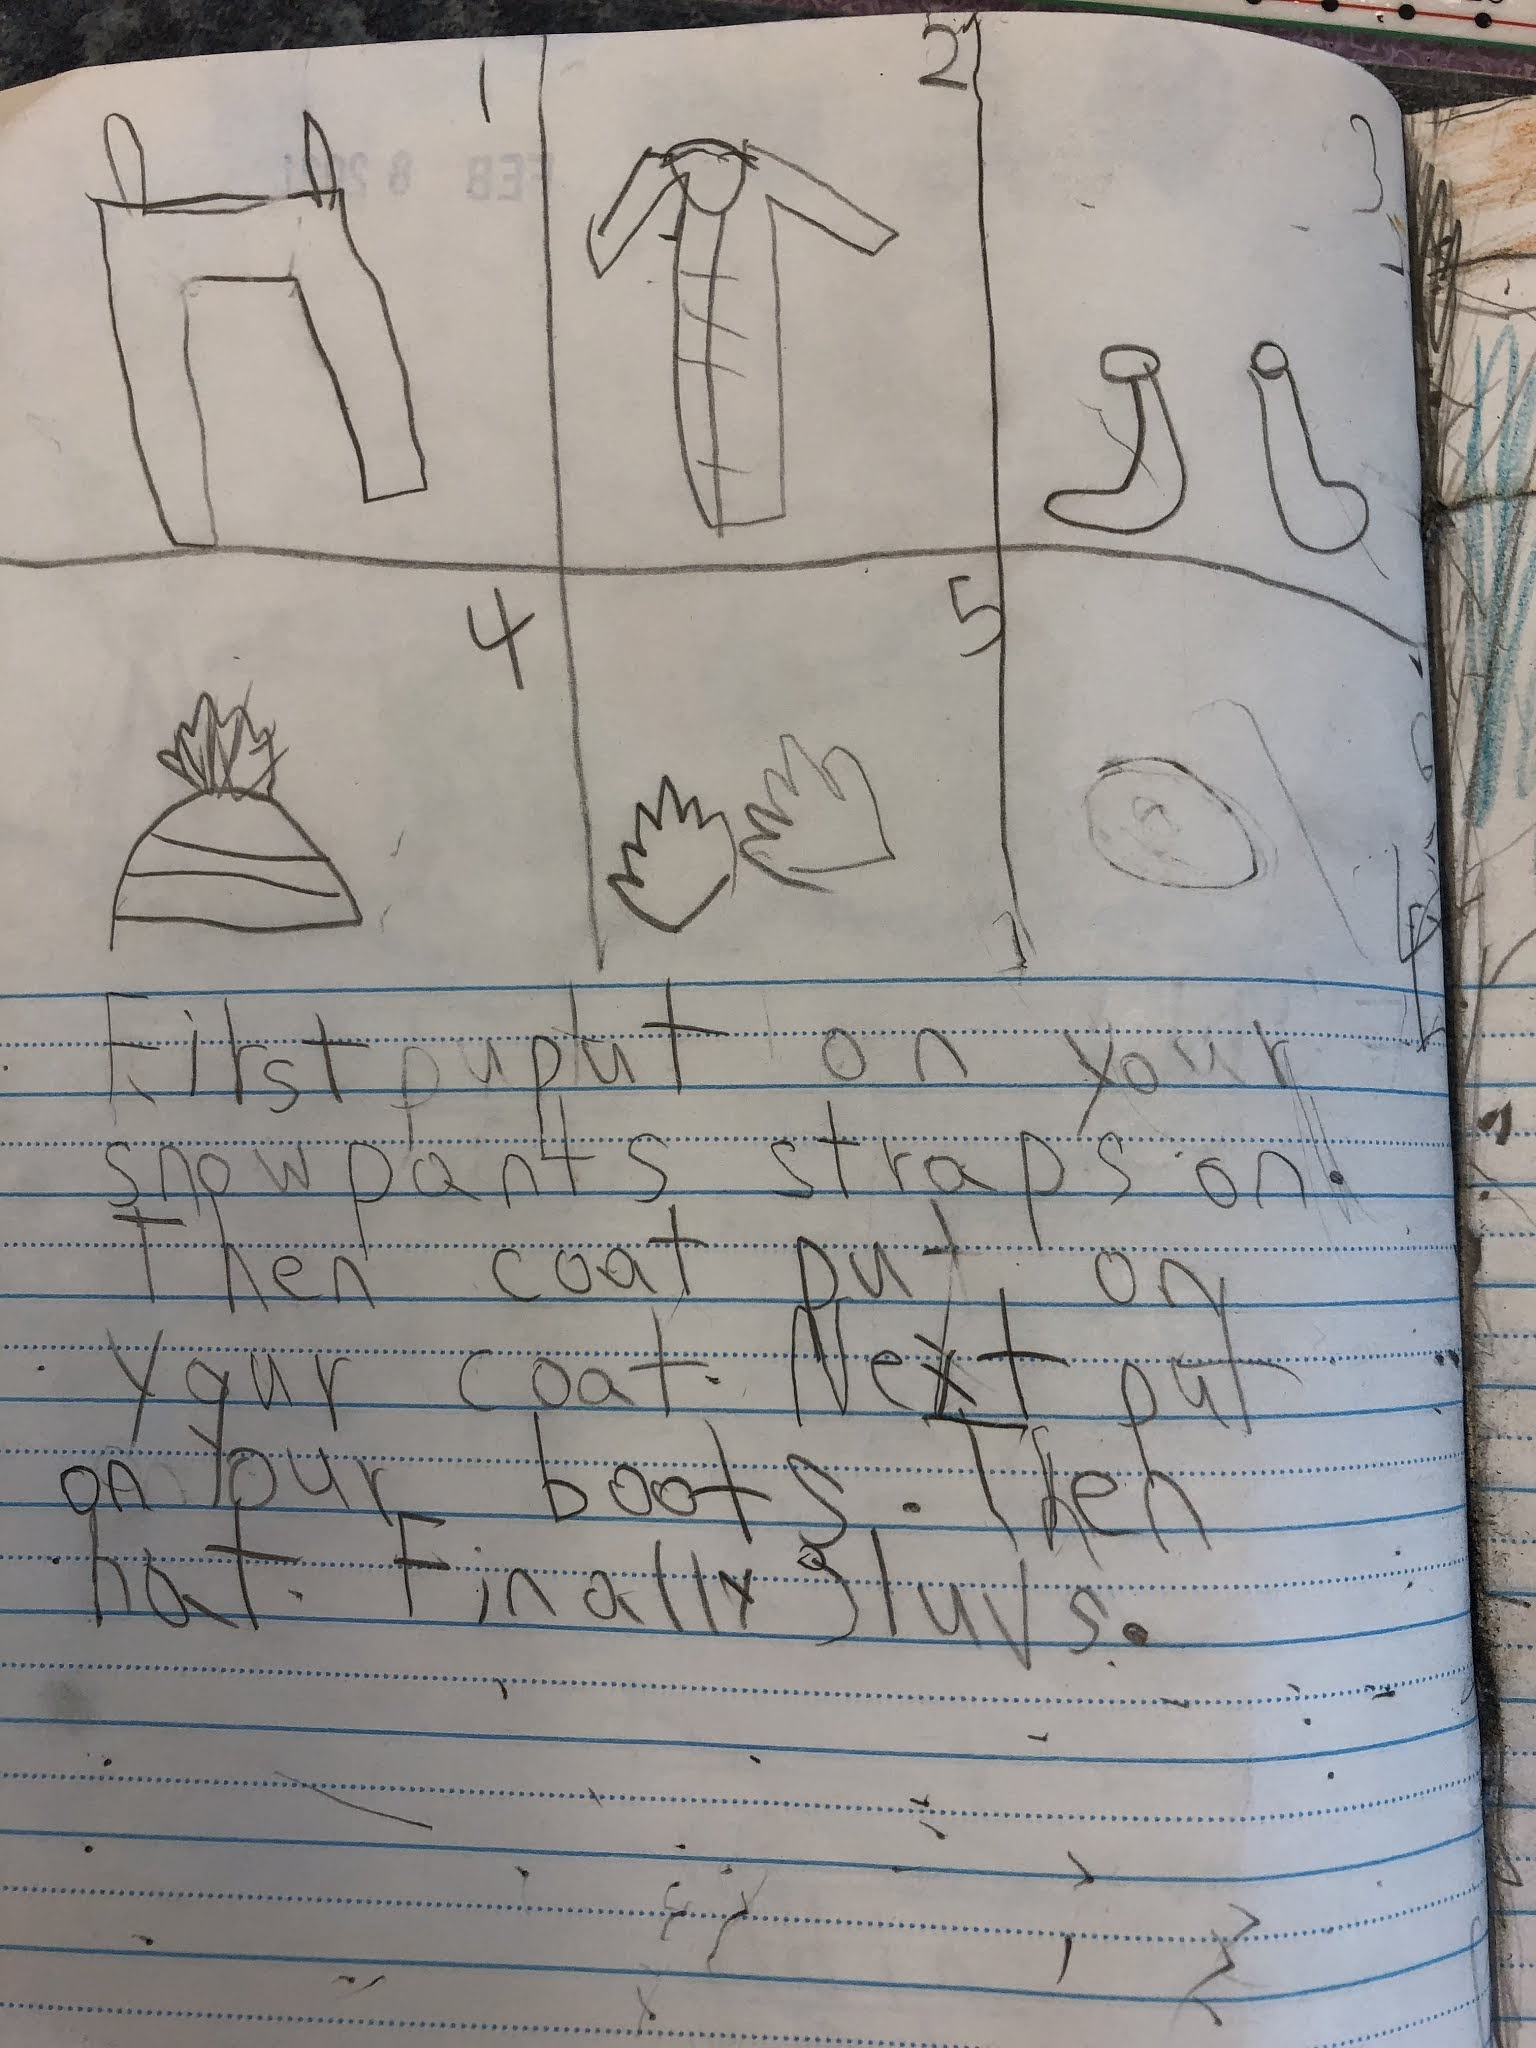 1 2 3
4 5 6
First puput on your
snowpants straps on.
Then coat put on
your coat. Next put
on your boots. Then
hat. Finally gluvs.